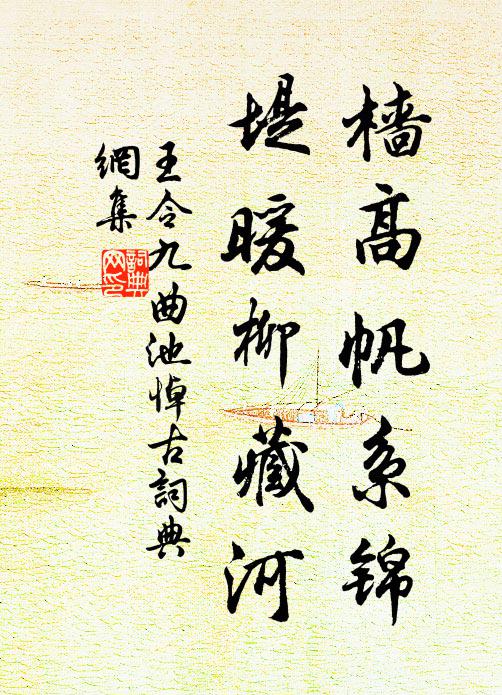 檣高帆系錦
堤暖柳藏河
王令九曲池悼古詞典
網集
詞典
网印